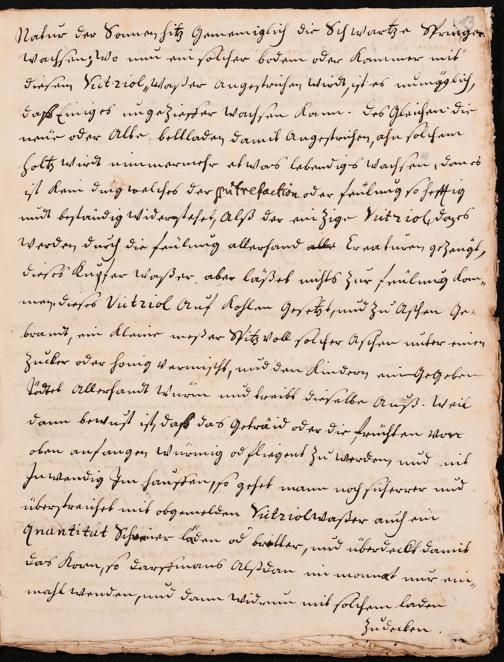 13
Natur der Sonnen hitz Gemeiniglich die Schwartze Springer
wachsen, wo nun ein solcher bodem oder Kammer mit
diesem Vitriol wasser angestrichen wirdt, ist es unmöglich,
daß Einiges ungezieffer wachsen kann. Des Gleichen die
neüe oder Alte bettladen damit Angestrichen, ahn solchem
holtz wirdt nimmermehr etwas lebendigs wachsen, dan es
ist kein ding welches der putrefaction oder feülung so hefftig
undt beständig widerstehet, Alß der einzige Vitriol, dans
werden durch die feülung allerhand alle Creaturen gezeügt,
dieses Kupfer wasser aber läßet nichts zur feülung kom-
men, dieses Vitriol auf Kohlen Gesetzt, und zu Aschen Ge-
brandt, ein kleine messer Spitz voll solcher Aschen unter einen
Zucker oder honig vermischt, und den Kindern ein Gegeben
tödtet Allerhandt würm und treibt dieselbe Auß. Weil
dann bewust ist, daß das Getraid oder die früchten von
oben anfangen würmig od fliegent zu werden, und nit
Inwendig Im hauffen, so gehet mann noch sicherer und
überstreichet mit obgemelden Vitriolwasser auch ein
Quantität Scheier läden od bretter, und überdeckt damit
das Korn, so darf mans Alßdan im monnat nur ein-
mahl wenden, und dann widrum mit solchem laden
Zudecken.